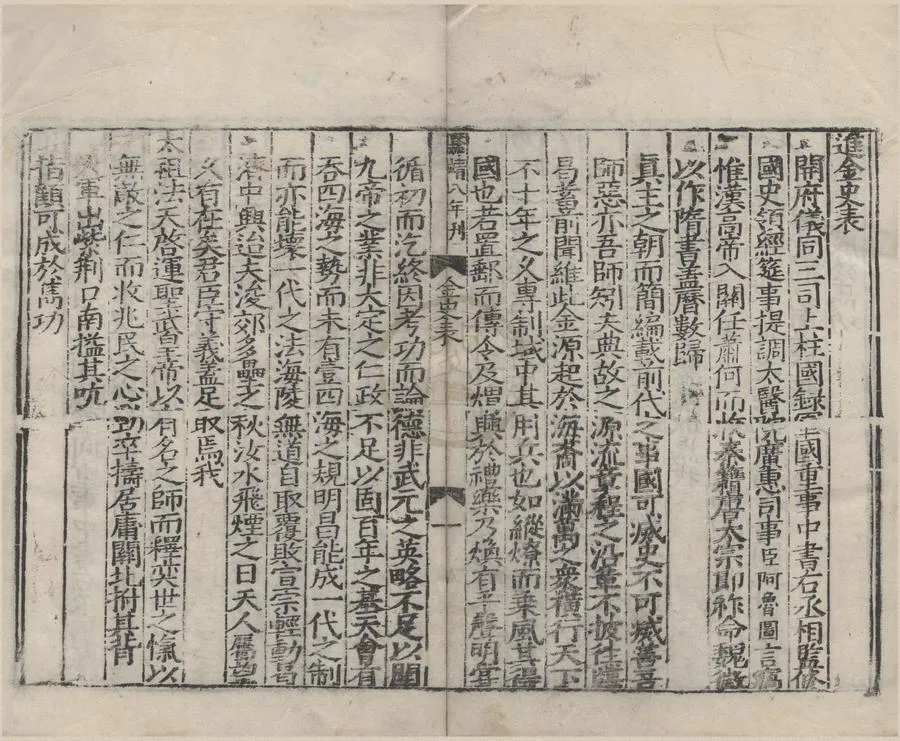 進金史表
開府儀同三司上柱國録軍國重事中書右丞相監修
國史領經筵事提調太醫院廣惠司事臣阿魯圖言竊
惟漢高帝入關任蕭何而收秦籍唐太宗即祚命魏徵
以作隋書蓋曆數歸
真主之朝而簡編載前代之事國可滅史不可滅善吾
師惡亦吾師矧夫典故之源流章程之沿革不披往牒
曷蓄前聞維此金源起於海裔以滿萬之衆横行天下
不十年之久專制域中其用兵也如縱燎而乘風其得
國也若置郵而傳令及熠興於禮樂乃煥有乎聲明嘗
靖八年刊
金史表
一
循初而汔終因考功而論德非武元之英略不足以開
九帝之業非大定之仁政不足以固百年之基天會有
吞四海之勢而未有壹四海之規明昌能成一代之制
而亦能壞一代之法海陵無道自取覆敗宣宗輕動曷
濟中興迨夫浚郊多壘之秋汝水飛煙之日天人屬望
久有在矣君臣守義蓋足取焉我
太祖法天啓運聖武皇帝以有名之師而釋奕世之愾以
無敵之仁而收兆民之心勁卒擣居庸關北拊其背
軍出紫荆口南搤其吭
指顧可成於雋功